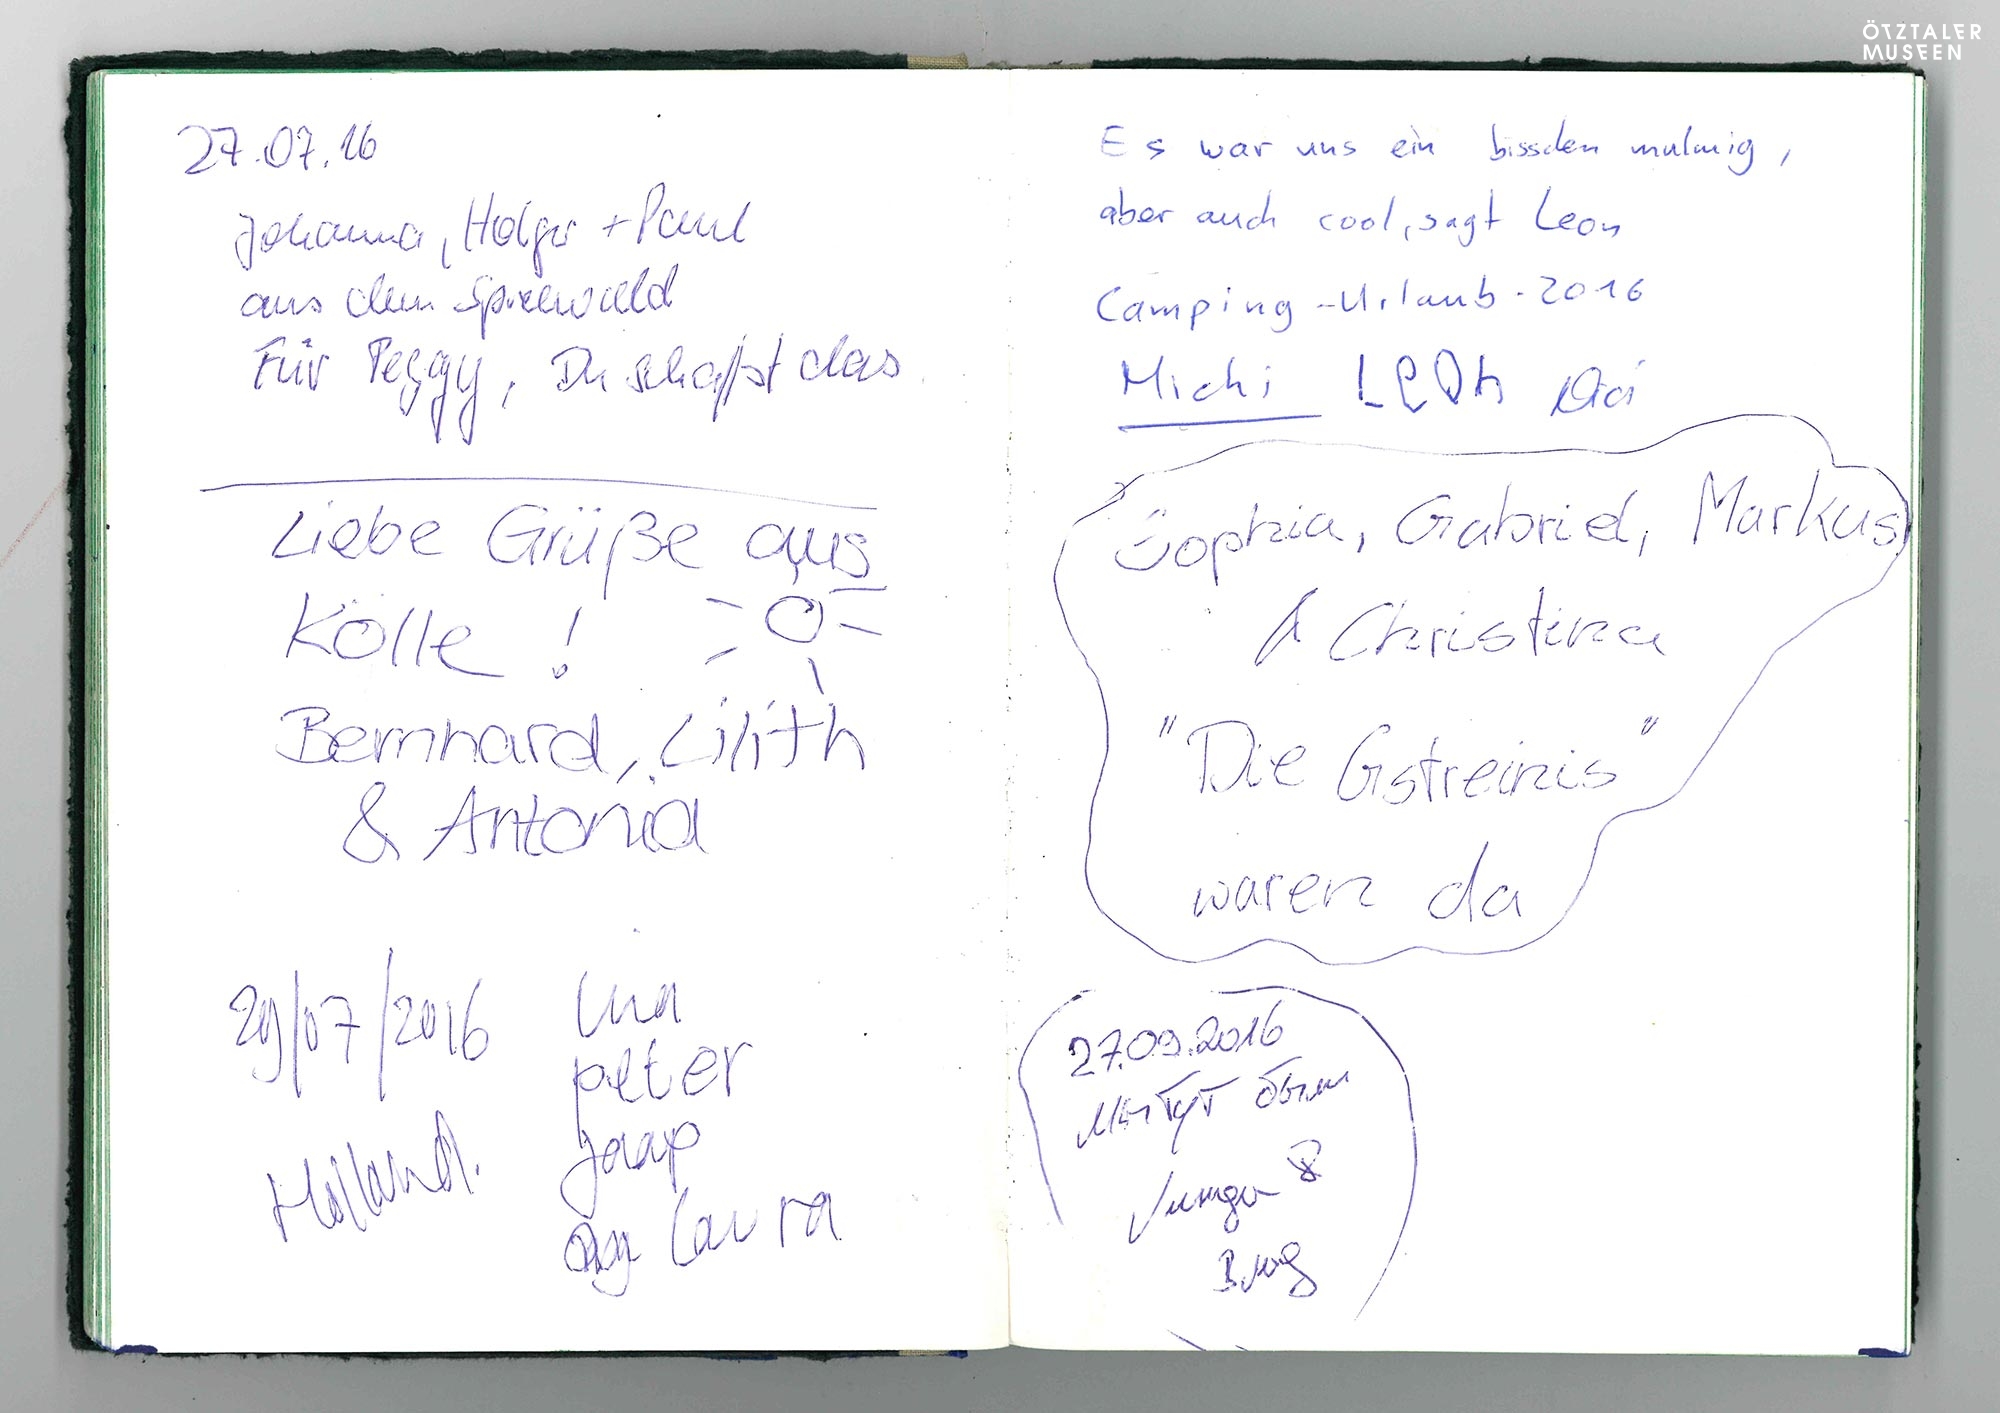 ÖTZTALER
MUSEEN
27.07.16
Johanna, Holger + Paul
aus dem Spreewald
Für Peggy, Du schaffst das
Liebe Grüße aus
Kölle !
Bernhard, Lilith
& Antonia
29/07/2016
Holland.
Lina
peter
Jaap
Laura
Es war uns ein bisschen mulmig,
aber auch cool, sagt Leon
Camping-Urlaub-2016
Michi LEOn
Sophia, Gabriel, Markus
& Christina
"Die Gstreinis"
waren da
27.09.2016
Мы тут были